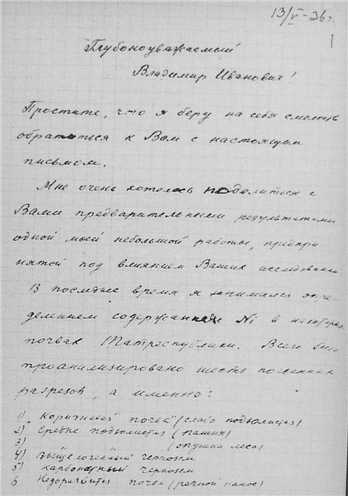 13/V-36 г.
1
Глубокоуважаемый
Владимир Иванович!
Простите, что я беру на себя смелость
обратиться к Вам с настоящим
письмом.
Мне очень хотелось поделиться с
Вами предварительными результатами
одной моей небольшой работы, предпри
нятой под влиянием Ваших исследований
В последнее время я занимался опре-
делением содержания Ni в некоторых
почвах Татреспублики. Всего было
проанализировано шесть почвенных
разрезов, а именно:
1) Коричневая почва (слабо подзолистая)
2) Средне подзолистая (пашня)
3) (опушка леса)
4) Выщелоченный чернозем
5) карбонатный чернозем
6 почва (речной нанос)